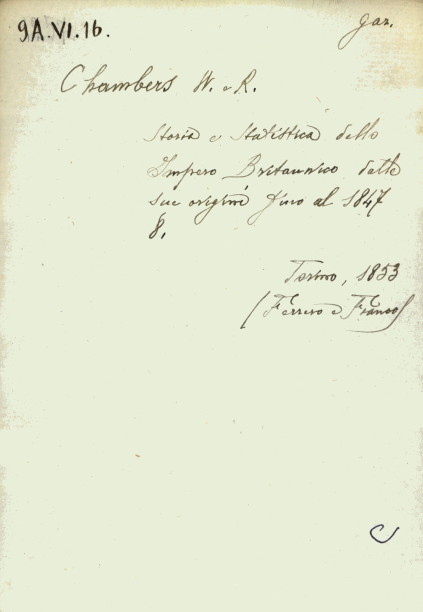 9A.VI.16.
gaz.
Chambers W. e R.
Storia e Statistica dello
Impero Britannico dalle
sue origini fino al 1847
8.
Torino, 1853
(Ferrero e Franco)
C